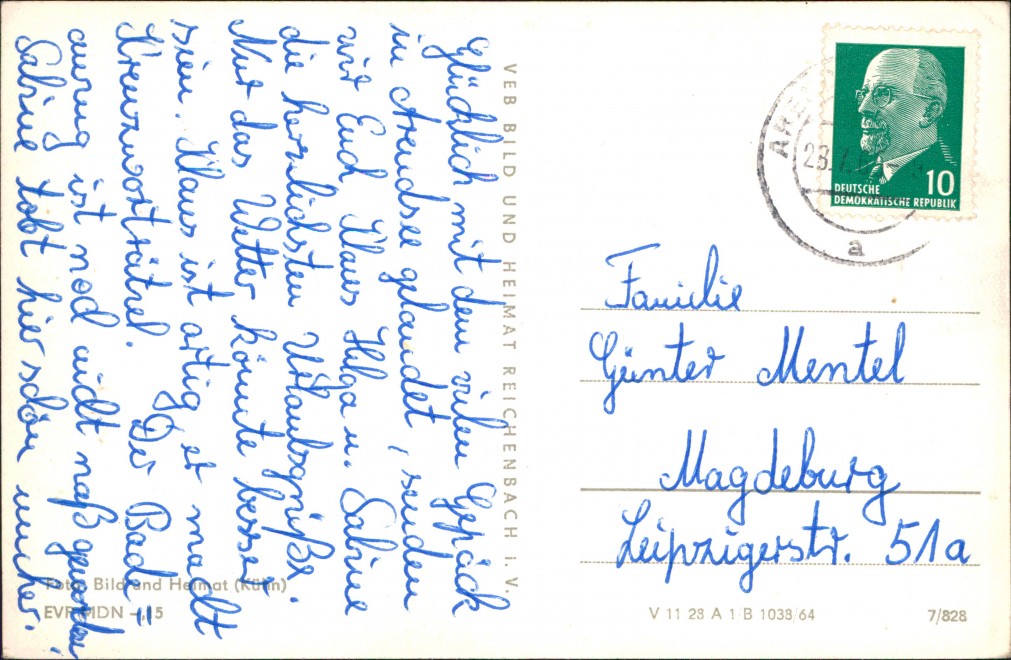 Glücklich mit dem vielen Gepäck
in Arendsee gelandet, senden
wir Euch Klaus Helga u. Sabine
die herzlichsten Urlaubsgrüße.
Nur das Wetter könnte besser
sein. Klaus ist artig er macht
Kreuzworträtsel. Der Bade=
anzug ist noch nicht naß geworden,
Sabine tobt hier schön umher.
VEB BILD UND HEIMAT REICHENBACH I. V.
Foto: Bild und Heimat (Kühn)
EVP MDN -,15
ARE
28.7.6
a
10
DEUTSCHE
DEMOKRATISCHE REPUBLIK
Familie
Günter Mentel
Magdeburg
Leipzigerstr. 51a
V 11 28 A 1 B 1038/64
7/828